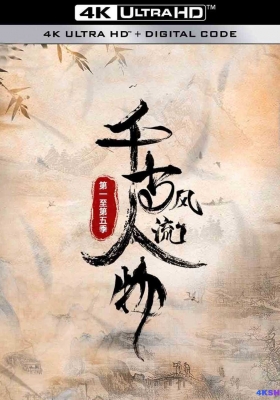 4K ULTRAHD™
4K ULTRA HD™ + DIGITAL CODE
千古风流人物
第一至第五季
4KSH